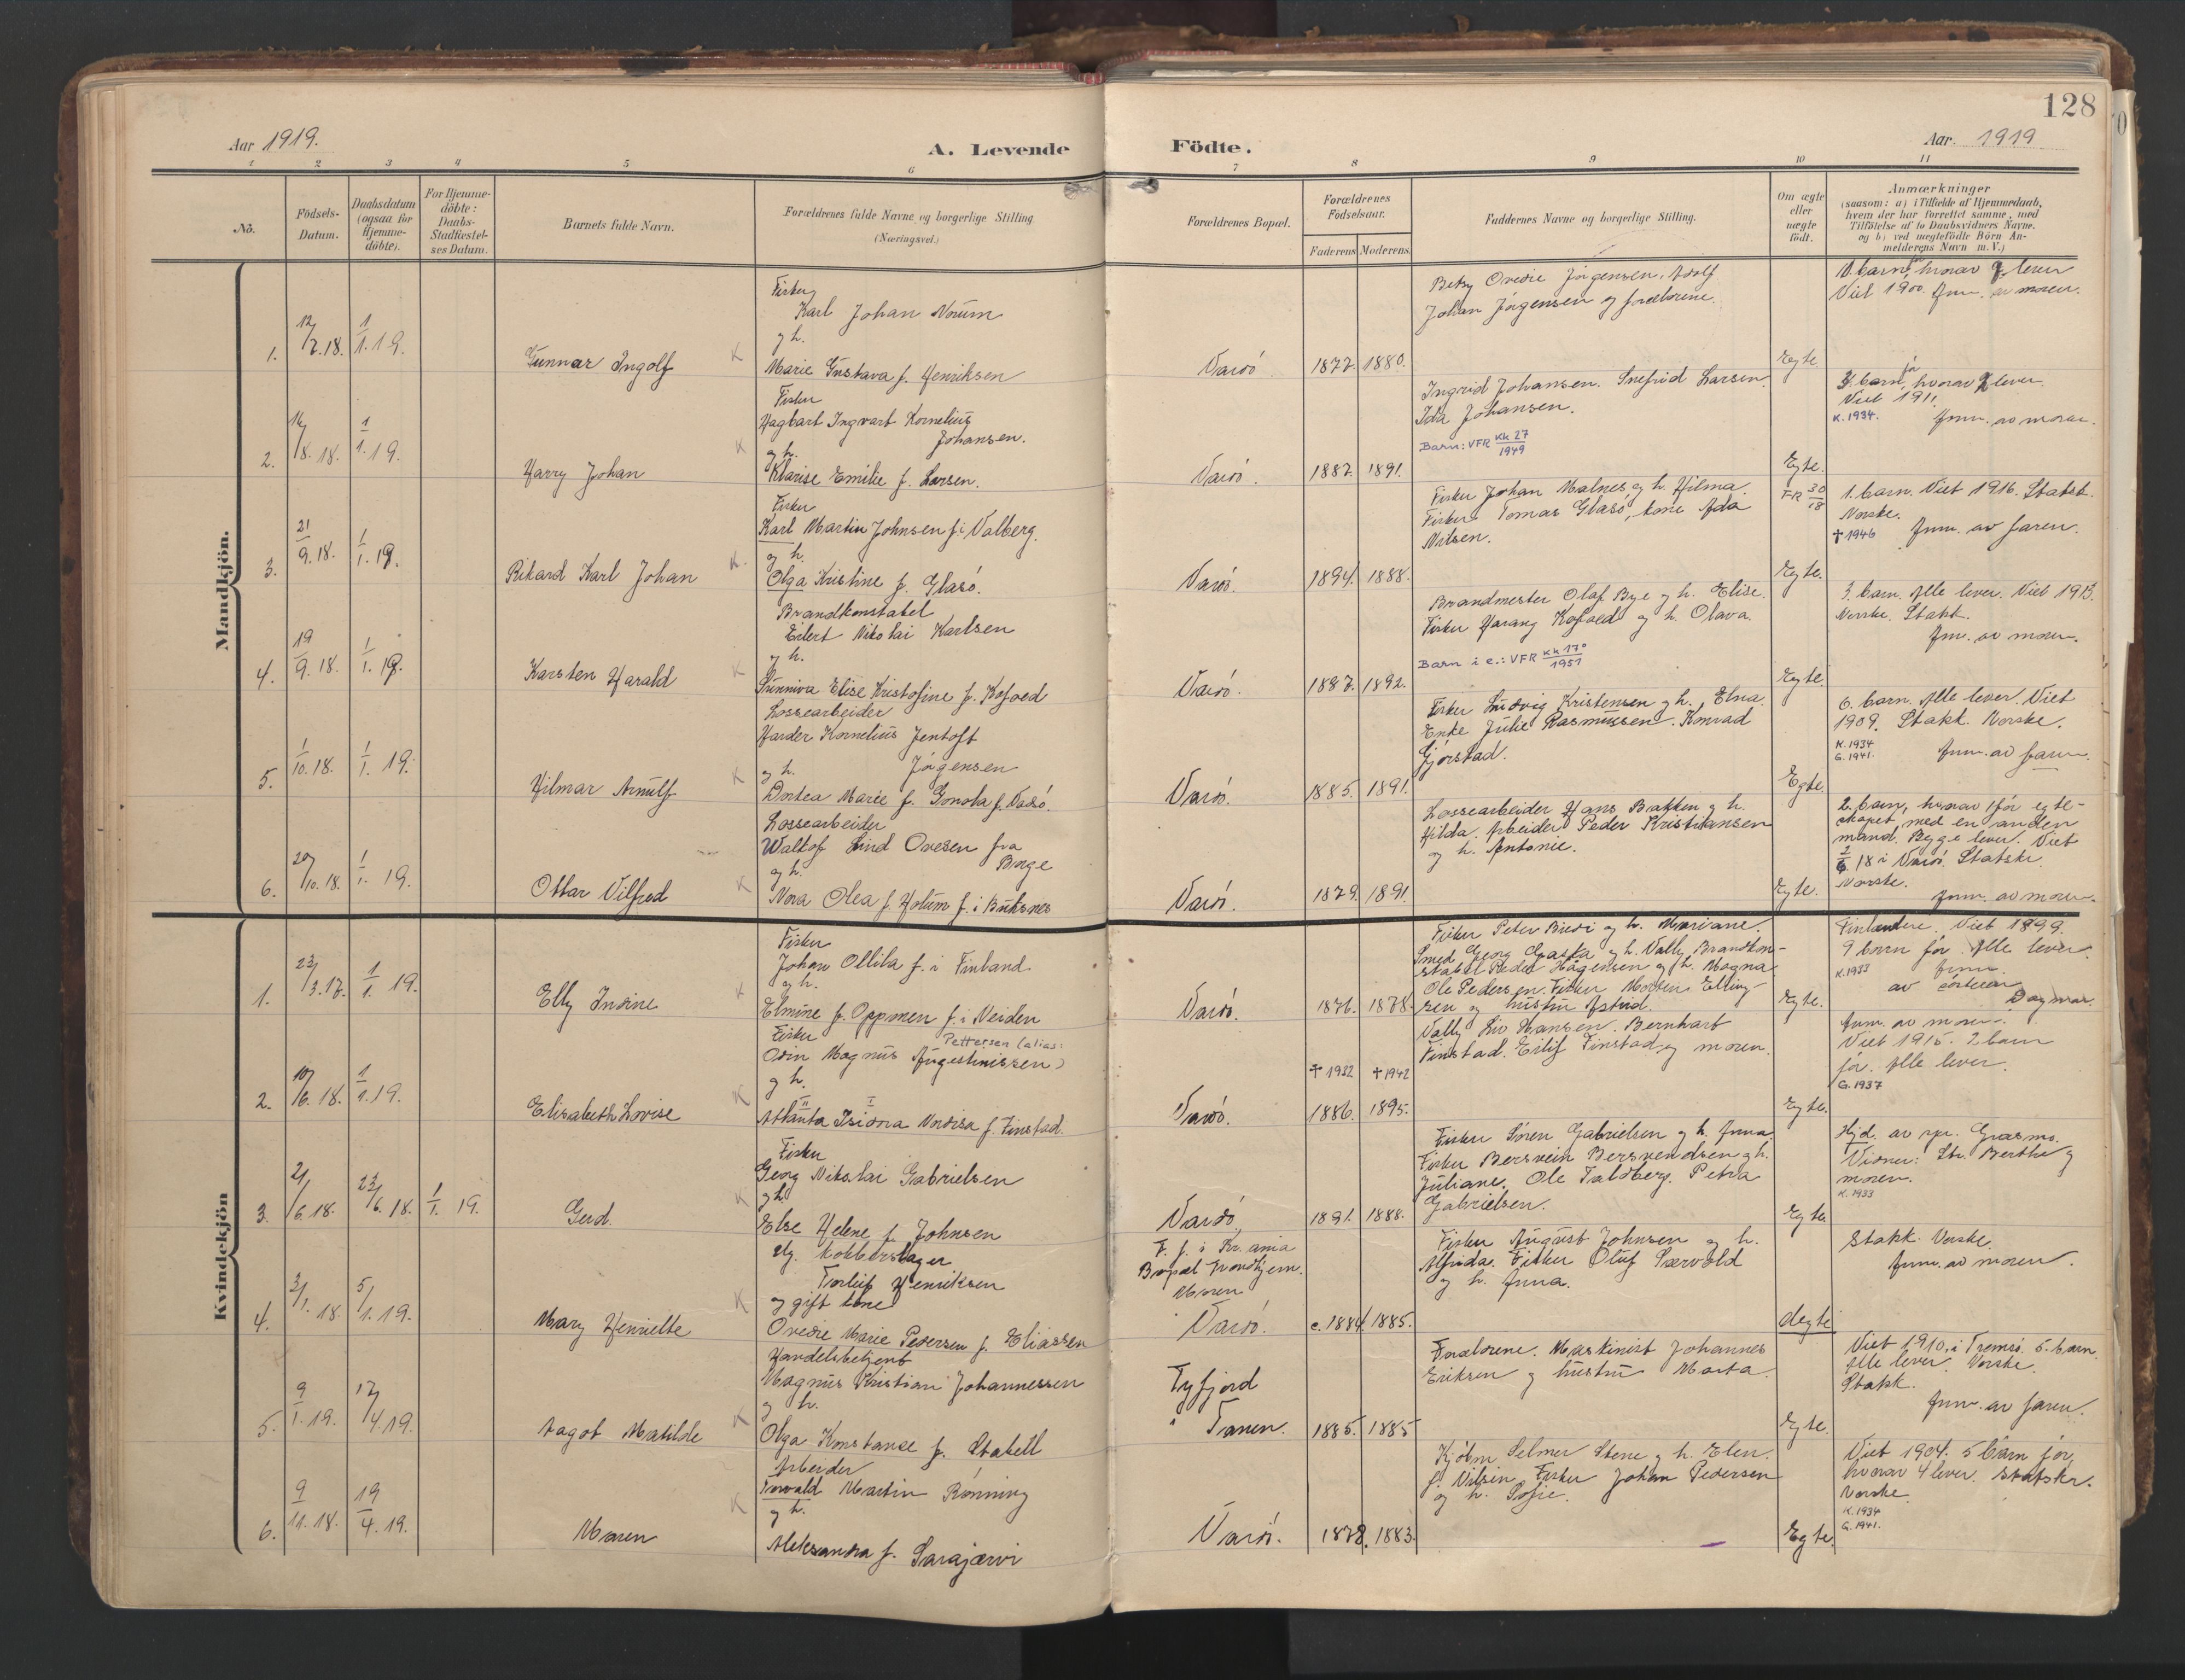 128
Aar 1919.
A. Levende Födte.
Aar. 1919
1 2 3 4 5 6 7 8 9 10 11
No.
Födsels-
Datum.
Daabsdatum
(ogsaa for
Hjemme-
döbte).
For Hjemme-
döbte:
Daabs-
Stadfæstel-
ses Datum.
Barnets fulde Navn.
Forældrenes fulde Navne og borgerlige Stilling
(Næringsvei.)
Forældrenes Bopæl.
Forældrenes
Födselsaar.
Faderens Moderens
Faddernes Navne og borgerlige Stilling.
Om ægte
eller
uægte
födt.
Anmærkninger
(saasom: a) i Tilfælde af Hjemmedaab,
hvem der har forrettet samme, med
Tilföielse af to Daabsvidners Navne.
og b) ved uægtefödte Börn An-
melderens Navn m. V.)
Mandkjön.
1.
12/7.18.
1/1.19.
Gunnar Ingolf
K
Fisker
Karl Johan Norum
og h.
Marie Gustava f. Henriksen
Vardö
1877. 1880.
Betsy Ovedie Jörgensen, Adolf
Johan Jörgensen og forældrene.
Egte
Viet 1900. Anm. av moren.
2.
14/8.18.
1/1.19.
Harry Johan
K
Fisker
Hagbart Ingvart Kornelius
Johansen.
og h.
Klarise Emilie f. Larsen.
Vardö.
1887. 1891.
Ingrid Johansen. Snefrid Larsen.
Ida Johansen.
Barn: VFR Kk 27/1949
Egte.
barn för, hvorav lever.
Viet 1911.
K. 1934.
Anm. av moren.
3.
21/9.18.
1/1.19.
Rikard Karl Johan
K.
Fisker
Karl Martin Johnsen f. i Valberg.
og h.
Olga Kristine f. Glasö.
Vardö.
1894. 1888.
Fisker Johan Malnes og h. Hilma.
Fisker Tomas Glasö, kone Ida
Nilsen.
FR 30/18
Egte.
1. barn. Viet 1916. Statsk.
Norske.
† 1946 Anm. av faren.
4.
19/9.18.
1/1.19.
Karsten Harald
K
Brandkonstabel
Eilert Nikolai Karlsen
og h.
Sunniva Elise Kristofine f. Kofoed
Vardö.
1887. 1892.
Brandmester Olaf Bye og h. Elise.
Fisker Harang Kofoed og h. Olava.
Barn i e.: VFR Kk 170/1951
Egte.
3. barn. Alle lever. Viet 1913.
Norske. Statsk.
Anm. av moren.
5.
1/10.18.
1/1.19.
Hilmar Arnulf
K
Lossearbeider
Harder Kornelius Jentoft
og h. Jörgensen
Dortea Marie f. Gonola f. Vadsö.
Vardö.
1885. 1891.
Fisker Ludvig Kristensen og h. Elna.
Enke Julie Rasmussen. Konrad
Gjörstad.
Egte.
6. barn. Alle lever. Viet
1909. Statsk. Norske.
K. 1934
G. 1941. Anm. av faren.
6.
20/10.18.
1/1.19.
Ottar Vilfred
K
Lossearbeider
Lind Ovesen fra
og h. Borge
Nora Olea f. Holum f. i Buksnes
Vardö.
1879. 1891.
Lossearbeider Hans Bakken og h.
Hilda. Arbeider Peder Kristiansen
og h. Antonie.
Egte.
2. barn, hvorav 1 för egte-
skapet med en anden
mand. Begge lever. Viet
2/6 18 i Vardö. Statsk.
Norske.
Anm. av moren.
Kvindekjön
1.
23/3.17.
1/1.19.
Elly Indine
K
Fisker
Johan Ollila f. i Finland
og h.
Elmine f. Opponen f. i Neiden
Vardö.
1876. 1878.
Fisker Peter Biedi og h. Mariane.
Smed Georg Gaska og h. Vally. Brandkon-
stabel Peder Hågensen og h. Magna
Ole Pedersen. Fisker Morten Elling-
sen og hustru Astrid.
Egte.
Finlændere. Viet 1899.
9 barn för. Alle lever.
K. 1933 Anm.
av söster
Dagmar.
2.
10/6.18.
1/1.19.
Elisabeth Lovise
K
Fisker
Pettersen (alias:
Odin Magnus Augustinissen)
og h.
II I
Atlanta Isidora Nordisa f. Finstad.
Vardö.
† 1932 † 1942
1886. 1895.
Vally Liv Hansen. Bernhart
Finstad. Eilif Finstad og moren.
Egte.
Anm. av moren.
Viet 1915. 2 barn
för. Alle lever.
G. 1937
3.
21/6.18.
23/6.18.
1/1.19.
Gerd.
K
Fisker
Georg Nikolai Gabrielsen
og h.
Else Helene f. Johnsen
Vardö.
1891. 1888.
Fisker Sören Gabrielsen og h. Anna.
Fisker Bersvein Bersvendsen og h.
Juliane. Ole Taldberg. Petra
Gabrielsen.
Egte.
Hjd. av spr. Græsmo.
Vidner: Str. Berthe og
moren.
K. 1933
4.
3/1.18.
5/1.19.
Mary Henriette
K
Ug. kobberslager
Torleif Henriksen
og gift kone
Ovedie Marie Pedersen f. Eliassen
F. f. i Kr.ania
Bopæl Trondhjem.
Moren
Vardö.
c. 1884. 1885.
Fisker August Johnsen og h.
Alfrida. Fisker Oluf Særvold
og h. Anna.
Uegte
Statsk. Norske.
Anm. av moren.
5.
9/1.19.
17/4.19.
Aagot Matilde
K
Handelsbetjent
Magnus Kristian Johannessen
og h.
Olga Konstanse f. Stabell
Fyfjord
i Tanen.
1885. 1885
Forældrene. Maskinist Johannes
Eriksen og hustru Marta.
Egte.
Viet 1910, i Tromsö. 5. barn.
Alle lever. Norske.
Statsk.
Anm. av faren.
6.
9/11.18.
19/4.19.
Maren
K
Arbeider
Torvald Martin Rönning
og h.
Aleksandra f. Sarajærvi
Vardö.
1878. 1883.
Kjöbm. Selmer Stene og h. Elen.
f. Nilsin. Fisker Johan Pedersen
og h. Sofie.
Egte.
Viet 1904. 5 barn för,
hvorav 4 lever. Statsk.
Norske.
K. 1934
G. 1941.